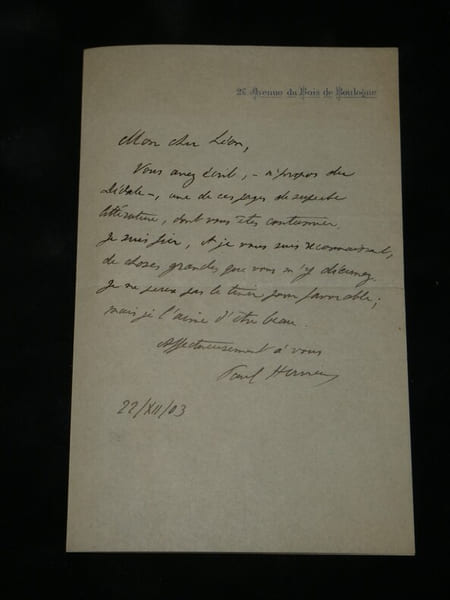 26 Avenue du Bois de Boulogne
Mon cher Léon,
Vous avez écrit, - à propos du
Dédale -, une de ces pages de superbe
littérature, dont vous êtes coutumier.
Je suis fier, et je vous suis reconnaissant,
de choses grandes que vous m'y décernez.
Je ne pas le tenir pour favorable ;
mais je l'aime d'être beau.
Affectueusement à vous
Paul Hervieu
22/XII/03